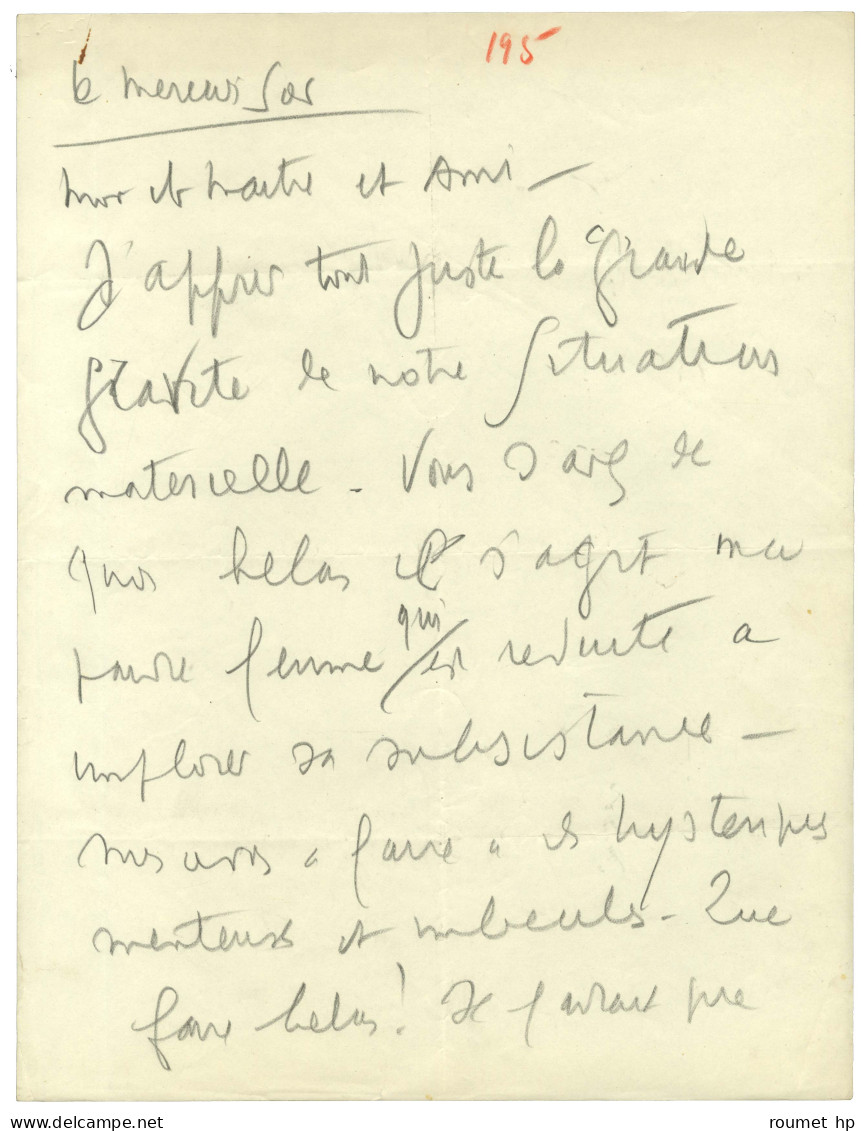 195
le mercredi soir
Mon ch maitre et Ami —
J'apprends tout juste la grande
gravite de notre situation
materielle. Vous savez de
quoi helas il s'agit ma
pauvre femme qui est reduite a
implorer sa subsistance —
nous avons a faire a des hysteriques
menteuses et imbeciles - Que
faire helas! Il faudrait que
roumet hp